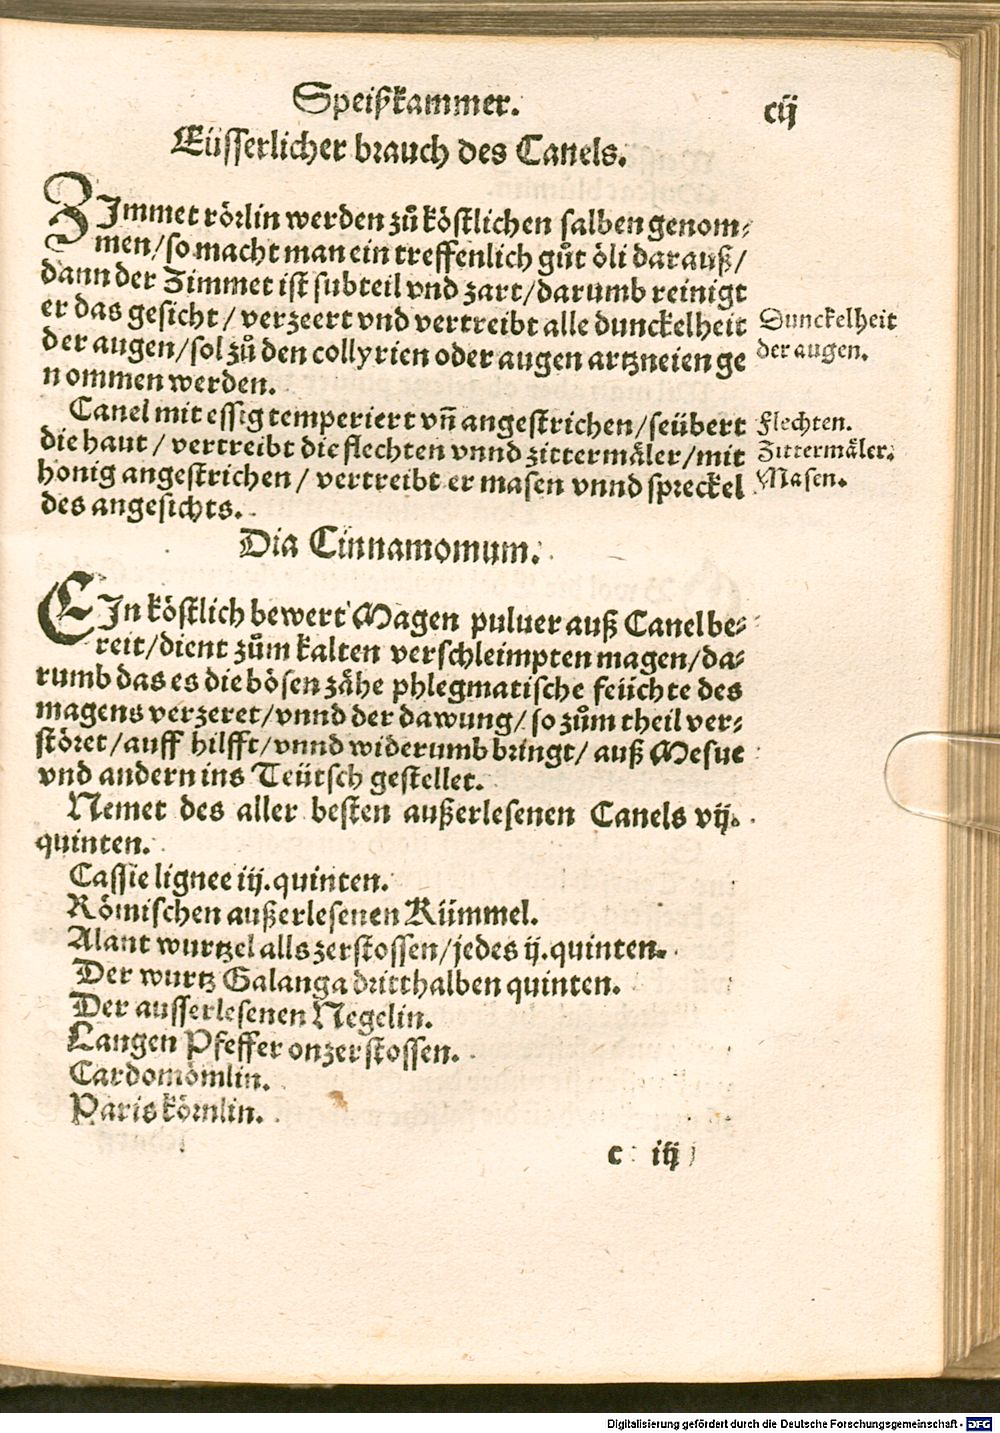 Speißkammer.
cij
Eüsserlicher brauch des Canels.
ZImmet rörlin werden zů köstlichen salben genom⸗
men/so macht man ein treffenlich gůt öli darauß/
dann der Zimmet ist subteil vnd zart/darumb reinigt
er das gesicht/verzeert vnd vertreibt alle dunckelheit
der augen/sol zů den collyrien oder augen artzneien ge
nommen werden.
Dunckelheit
der augen.
Canel mit essig temperiert vñ angestrichen/seübert
die haut/vertreibt die flechten vnnd zittermäler/mit
honig angestrichen/vertreibt er masen vnnd spreckel
des angesichts.
Flechten.
Zittermäler.
Masen.
Dia Cinnamomum.
EIn köstlich bewert Magen puluer auß Canel be⸗
reit/dient zům kalten verschleimpten magen/da⸗
rumb das es die bösen zähe phlegmatische feüchte des
magens verzeret/vnnd der dawung/so zům theil ver⸗
störet/auff hilfft/vnnd widerumb bringt/auß Mesue
vnd andern ins Teütsch gestellet.
Nemet des aller besten außerlesenen Canels vij.
quinten.
Cassie lignee iij.quinten.
Römischen außerlesenen Kümmel.
Alant wurtzel alls zerstossen/jedes ij.quinten.
Der wurtz Galanga dritthalben quinten.
Der ausserlesenen Negelin.
Langen Pfeffer onzerstossen.
Cardomömlin.
Paris körnlin.
c iij
Digitalisierung gefördert durch die Deutsche Forschungsgemeinschaft - DFG